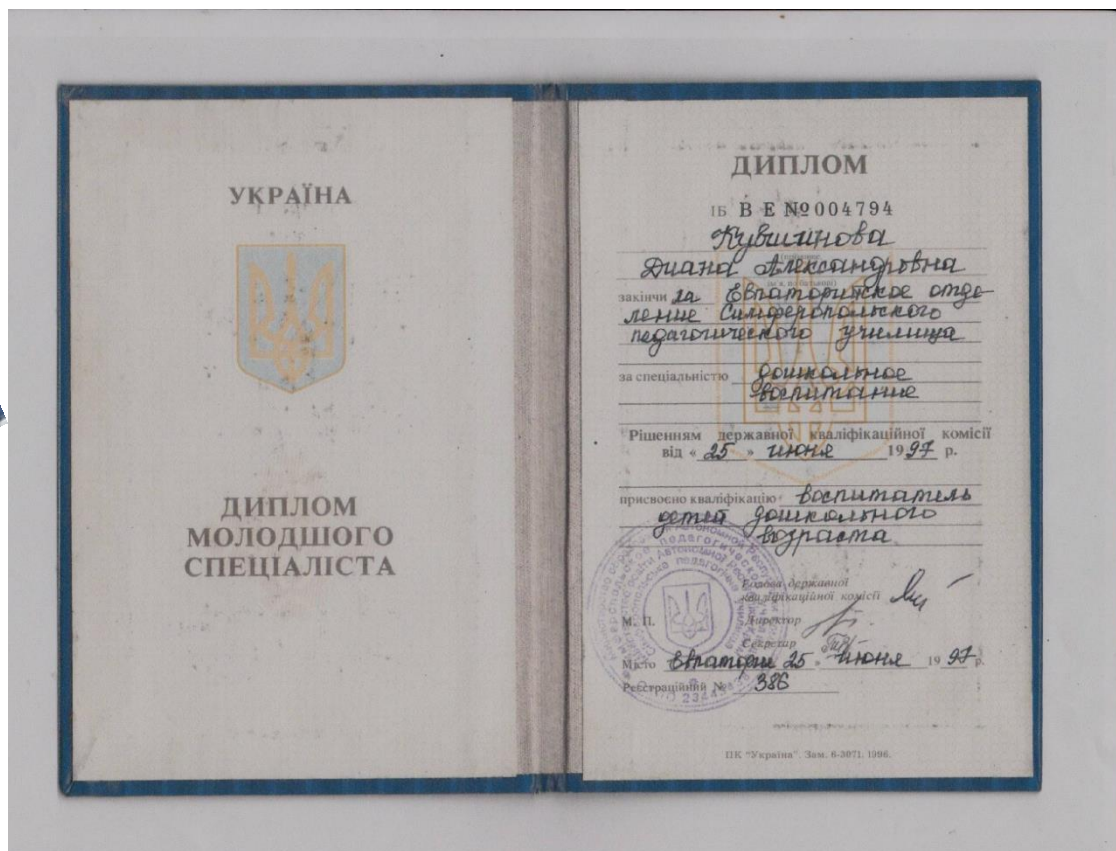 УКРАЇНА
ДИПЛОМ
МОЛОДШОГО
СПЕЦІАЛІСТА
ДИПЛОМ
ІБ ВЕ №004794
Кувшинова
Диана Александровна
закінчи ла Евпаторийское отде-
ление Симферопольского
педагогического училища
за спеціальністю дошкольное
воспитание
Рішенням державної кваліфікаційної комісії
від « 25 » июня 1997 р.
присвоєно кваліфікацію воспитатель
детей дошкольного
возраста
Голова державної
кваліфікаційної комісії
М. П. Директор
Секретар
Місто Евпатория 25 » июня 1997 р.
Реєстраційний № 386
ПК "Україна". Зам. 6-3071. 1996.